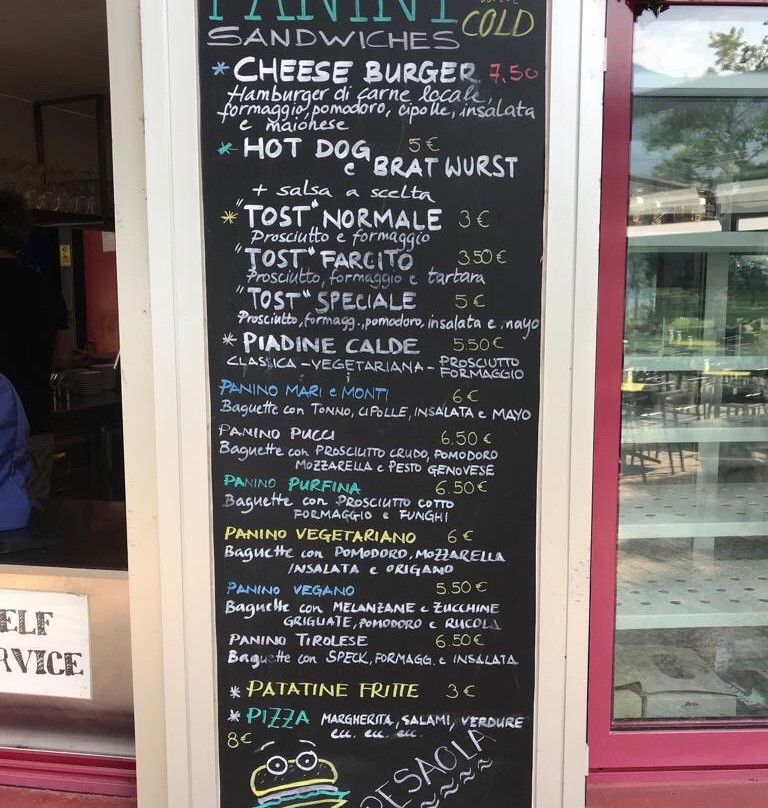 PANINI
COLD
SANDWICHES
* CHEESE BURGER 7,50
Hamburger di carne locale,
formaggio, pomodoro, cipolle, insalata
e maionese
* HOT DOG 5€
e BRATWURST
+ salsa a scelta
* "TOST" NORMALE 3€
Prosciutto e formaggio
"TOST" FARCITO 3.50€
Prosciutto, formaggio e tartara
"TOST" SPECIALE 5€
Prosciutto, formagg., pomodoro, insalata e mayo
* PIADINE CALDE 5.50€
CLASSICA - VEGETARIANA - PROSCIUTTO
FORMAGGIO
PANINO MARI e MONTI 6€
Baguette con TONNO, CIPOLLE, INSALATA e MAYO
PANINO PUCCI 6.50€
Baguette con PROSCIUTTO CRUDO, POMODORO
MOZZARELLA e PESTO GENOVESE
PANINO PURFINA 6.50€
Baguette con PROSCIUTTO COTTO
FORMAGGIO e FUNGHI
PANINO VEGETARIANO 6€
Baguette con POMODORO, MOZZARELLA
INSALATA e ORIGANO
PANINO VEGANO 5.50€
Baguette con MELANZANE e ZUCCHINE
GRIGLIATE, POMODORO e RUCOLA
PANINO TIROLESE 6.50€
Baguette con SPECK, FORMAGG. e INSALATA
* PATATINE FRITTE 3€
* PIZZA MARGHERITA, SALAMI, VERDURE
ecc. ecc. ecc.
8€
DESAOLA
ELF
RVICE